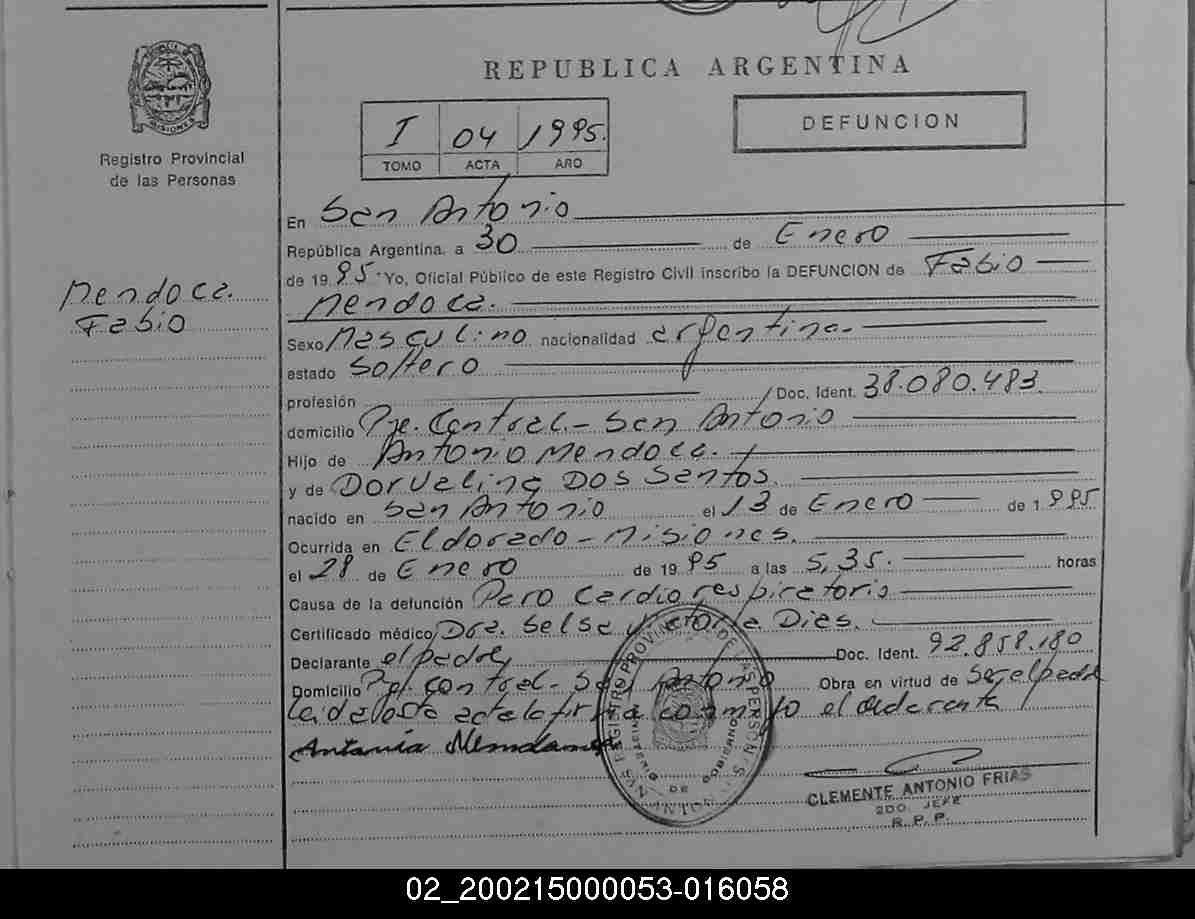 REPUBLICA ARGENTINA
I 04 1995.
TOMO ACTA AÑO
DEFUNCION
MISIONES
Registro Provincial
de las Personas
Mendoca.
Fabio
En San Antonio
República Argentina. a 30 de Enero
de 1995 Yo, Oficial Público de este Registro Civil inscribo la DEFUNCION de Fabio
Mendoca.
Sexo Masculino nacionalidad argentina.
estado Soltero
profesión / Doc. Ident. 38.080.483.
domicilio Pje. Central.- San Antonio
Hijo de Antonio Mendoca.
y de Dorvelina Dos Santos.
nacido en San Antonio el 13 de Enero de 1.995
Ocurrida en Eldorado - Misiones.
el 28 de Enero de 1995 a las 5,35. horas
Causa de la defunción Paro Cardiorespiratorio
Certificado médico Dra. Selsa Dias.
Declarante el padre, Doc. Ident. 92.858.180
Domicilio Pje. Central.- San Antonio Obra en virtud de Ser el padre
Leida esta acta la firma conmigo el declarante
Antonio
REGISTRO PROVINCIAL DE LAS PERSONAS
MINISTERIO DE GOBIERNO
CLEMENTE ANTONIO FRIAS
2DO. JEFE
R. P. P.
02_200215000053-016058